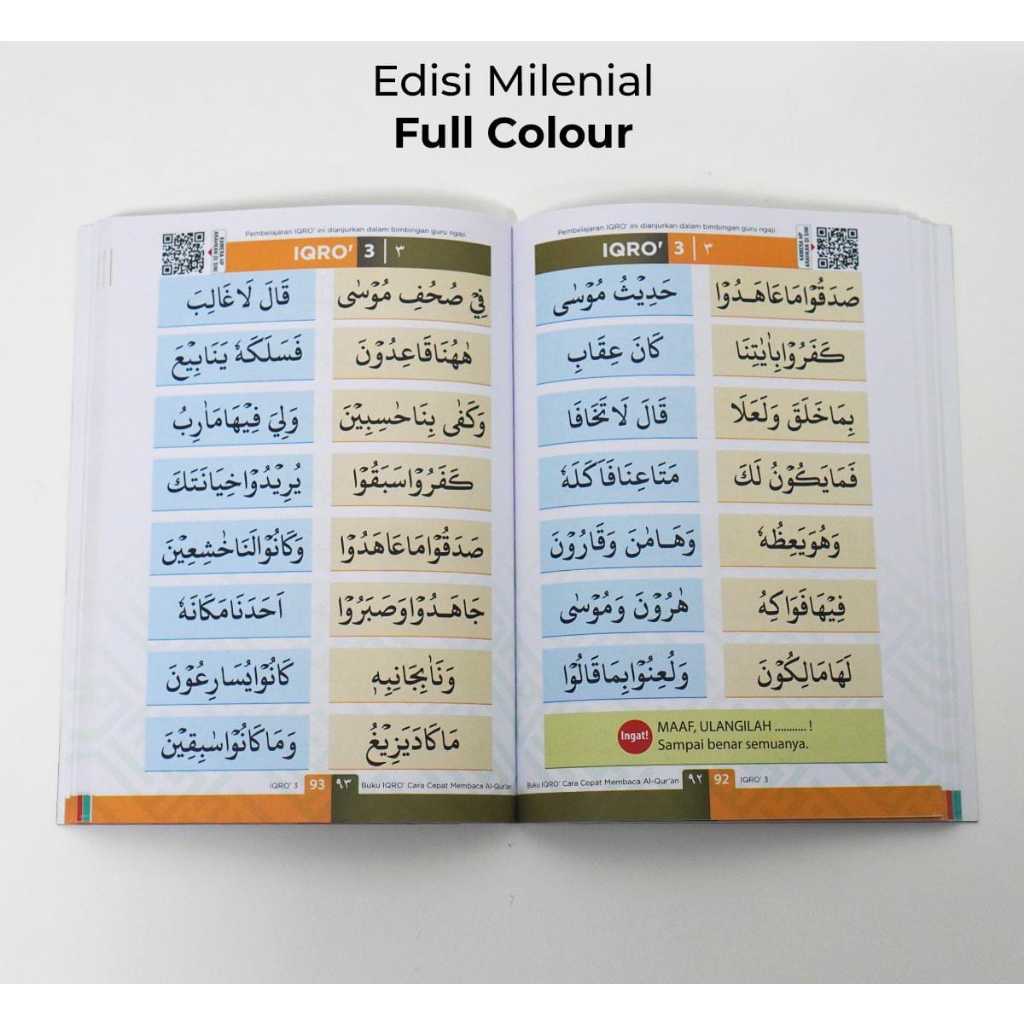 Edisi Milenial
Full Colour
Pembelajaran IQRO' ini dianjurkan dalam bimbingan guru ngaji
IQRO' 3 | ٣
صَدَقُوْامَاعَاهَدُوْا
حَدِيْثُ مُوْسٰى
كَفَرُوْابِاٰيٰتِنَا
كَانَ عِقَابِ
بِمَاخَلَقَ وَلَعَلَا
قَالَ لَا تَخَافَا
فَمَايَكُوْنُ لَكَ
مَتَاعِنَافَاَكَلَهٗ
وَهُوَيَعِظُهٗ
وَهَامٰنَ وَقَارُوْنَ
فِيْهَافَوَاكِهُ
هٰرُوْنَ وَمُوْسٰى
لَهَامَالِكُوْنَ
وَلُعِنُوْابِمَاقَالُوْا
Ingat!
MAAF, ULANGILAH ...........!
Sampai benar semuanya.
Buku IQRO' Cara Cepat Membaca Al-Qur'an ٩٢ 92 IQRO' 3
Pembelajaran IQRO' ini dianjurkan dalam bimbingan guru ngaji
IQRO' 3 | ٣
فِيْ صُحُفِ مُوْسٰى
قَالَ لَا غَالِبَ
هٰهُنَاقَاعِدُوْنَ
فَسَلَكَهٗ يَنَابِيْعَ
وَكَفٰى بِنَاحٰسِبِيْنَ
وَلِيَ فِيْهَامَاٰرِبُ
كَفَرُوْاسَبَقُوْا
يُرِيْدُوْاخِيَانَتَكَ
صَدَقُوْامَاعَاهَدُوْا
وَكَانُوْالَنَاخٰشِعِيْنَ
جَاهَدُوْاوَصَبَرُوْا
اَحَدَنَامَكَانَهٗ
وَنَاٰبِجَانِبِهٖ
كَانُوْايُسَارِعُوْنَ
مَاكَادَيَزِيْغُ
وَمَاكَانُوْاسٰبِقِيْنَ
IQRO' 3 93 ٩٣ Buku IQRO' Cara Cepat Membaca Al-Qur'an